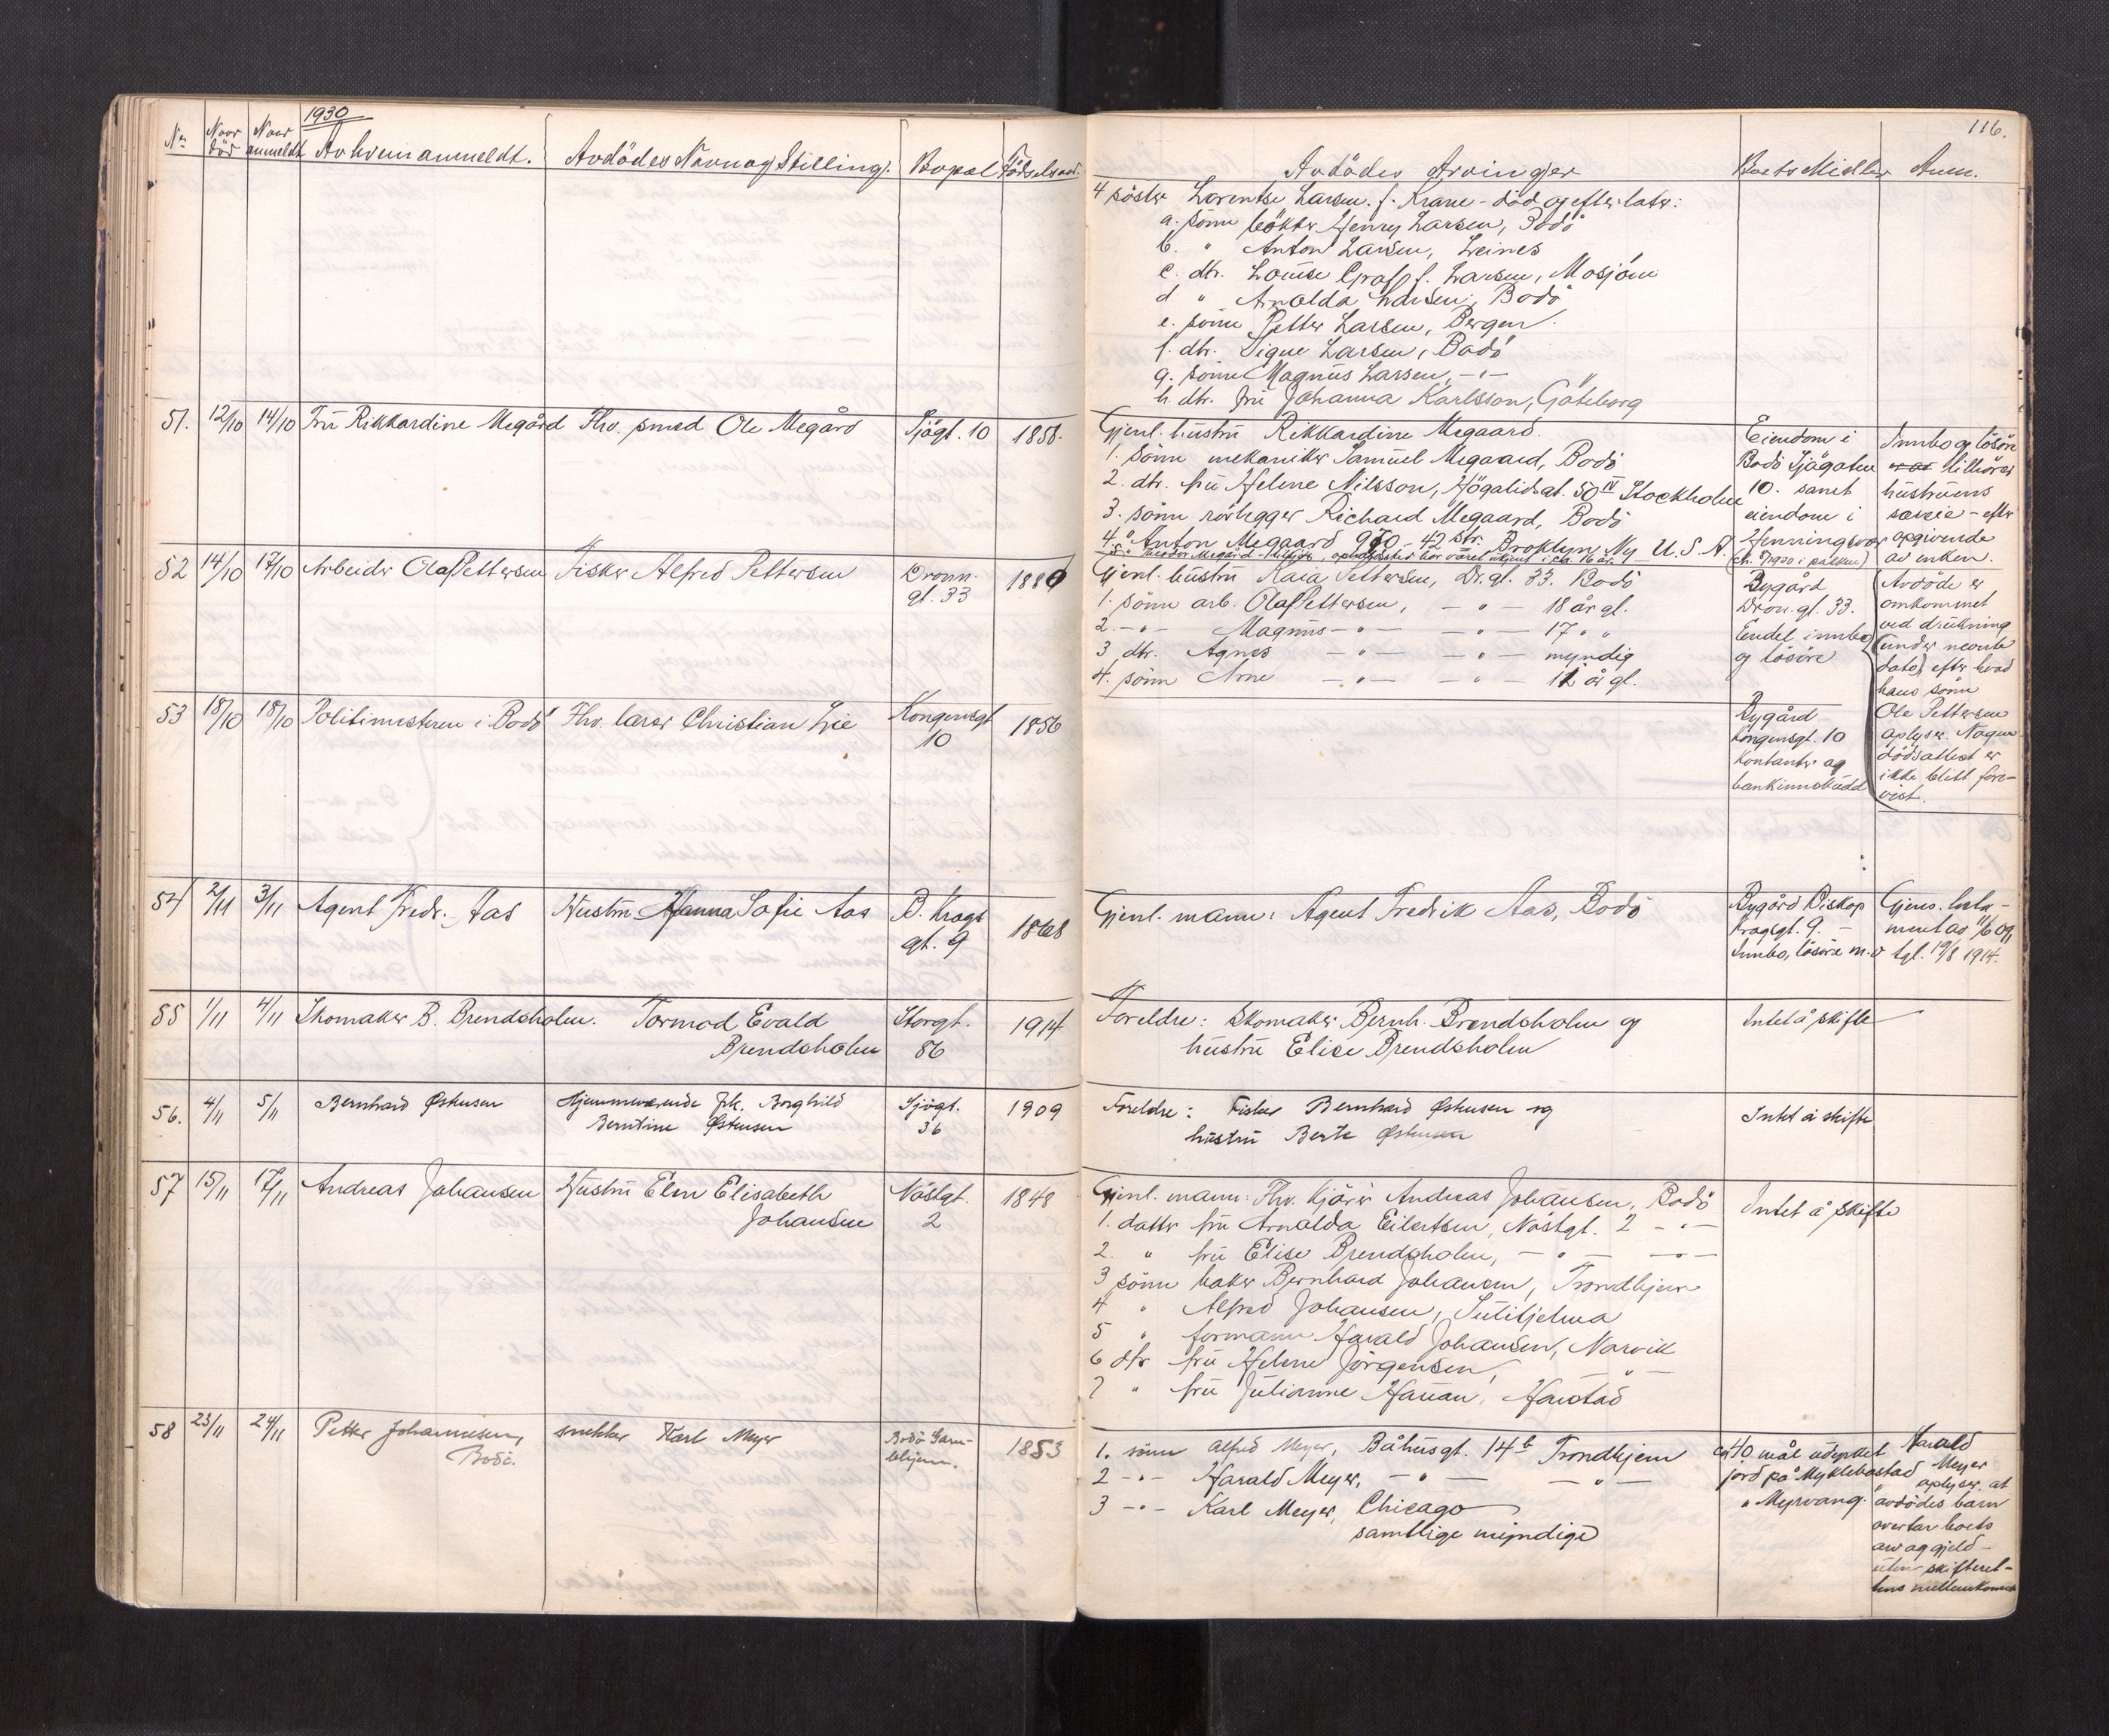 1930
116.
Nr. Naar död Naar anmeldt Av hvem anmeldt. Avdödes Navn og Stilling. Bopæl Födselsaar.
Avdödes Arvinger Boets Midler Anm.
4 söster Lorentse Larsen f. Krane - död og efterlater:
a. sönn bökker Henry Larsen, Bodö
b. " Anton Larsen, Leines
c. dtr. Louise Graff f. Larsen, Mosjöen
d. " Arnolda Larsen, Bodö
e. sönn Petter Larsen, Bergen.
f. dtr. Signe Larsen, Bodö
g. sönn Magnus Larsen, -"-
h. dtr. fru Johanna Karlsson, Göteborg
51. 12/10 14/10 Fru Rikkardine Megård Fhv. smed Ole Megård Sjögt. 10 1858.
Gjenl. hustru Rikkardine Megaard.
1. sönn mekaniker Samuel Megaard, Bodö
2. dtr. fru Helene Nilsson, Högalidsgt. 50 IV Stockholm
3. sönn rörlegger Richard Megaard, Bodö
4. " Anton Megaard 970 - 42 Str. Broklyn, Ny U.S.A.
Eiendom i
Bodö Sjögaten
10. samt
eiendom i
Henningsvær
Innbo og lösöre
var tilhörer
hustruens
særeie - efter
opgivende
av enken.
52 14/10 17/10 Arbeider Olaf Pettersen Fisker Alfred Pettersen Dronn.
gt. 33 1880
Gjenl. hustru Kaia Pettersen, Dr. gt. 33. Bodö
1. sönn arb. Olaf Pettersen, - " - 18 år gl.
2. -"- Magnus -"- -"- 17 " "
3 dtr. Agnes -"- -"- myndig
4. sönn Arne -"- -"- 12 år gl.
Bygård
Dron. gt. 33.
Endel innbo
og lösöre
Avdöde er
omkommet
ved drukning
under nevnte
dato, efter hvad
hans sönn
Ole Pettersen
oplyser. Nogen
dödsattest er
ikke blitt fore-
vist.
53 18/10 18/10 Politimesteren i Bodö Fhv. lærer Christian Lie Kongensgt
10 1856
Bygård
Kongensgt. 10
Kontanter og
bankinnskudd
54 2/11 3/11 Agent Fredr. Aas Hustru Hanna Sofie Aas B. Krogs
gt. 9 1868
Gjenl. mann: Agent Fredrik Aas, Bodö
Bygård Biskop
Krogsgt. 9. -
Innbo, lösöre m.v
Gjens. testa-
ment av 11/6 09,
tgl. 19/8 1914.
55 1/11 4/11 Skomaker B. Brendsholm. Tormod Evald
Brendsholm Storgt.
86 1914
Foreldre: Skomaker Bernh. Brendsholm og
hustru Elise Brendsholm
Intet å skifte
56. 4/11 5/11 Bernhard Østensen Hjemmeværende frk. Borghild
Berntine Østensen Sjögt.
36 1909
Foreldre: Fisker Bernhard Østensen og
hustru Berte Østensen
Intet å skifte
57 15/11 17/11 Andreas Johansen Hustru Elen Elisabeth
Johansen Nöstgt.
2 1848
Gjenl. mann: Fhv. kjörer Andreas Johansen, Bodö
1. datter fru Arnolda Eilertsen, Nöstgt. 2 -"-
2. " fru Elise Brendsholm, -"- -"-
3 sönn baker Bernhard Johansen, Trondhjem
4 " Alfred Johansen, Sulitjelma
5 " formann Harald Johansen, Narvik
6 dtr fru Helene Jörgensen, -"-
7 " fru Julianne Hauan, Harstad
Intet å skifte
58 23/11 24/11 Petter Johannesen,
Bodö. snekker Karl Meyer Bodö Gam-
lehjem. 1853
1. sönn Alfred Meyer, Båhusgt. 14 b Trondhjem
2 -"- Harald Meyer, -"- -"-
3 -"- Karl Meyer, Chicago
samtlige myndige
ca 40 mål udyrket
jord på Myklebostad
" Myrvang.
Harald
Meyer
oplyser, at
avdödes barn
overtar boets
arv og gjeld -
uten skifteret-
tens mellemkomst